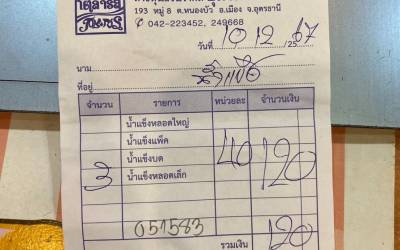 กุลาธิช
193 หมู่ 8 ต.หนองบัว อ.เมือง จ.อุดรธานี
042-223452, 249668
วันที่ 10 12 2567
นาม
ที่อยู่
จำนวน รายการ หน่วยละ จำนวนเงิน
น้ำแข็งหลอดใหญ่
น้ำแข็งแพ็ค
น้ำแข็งบด
3 น้ำแข็งหลอดเล็ก 40 120
051583
รวมเงิน 120